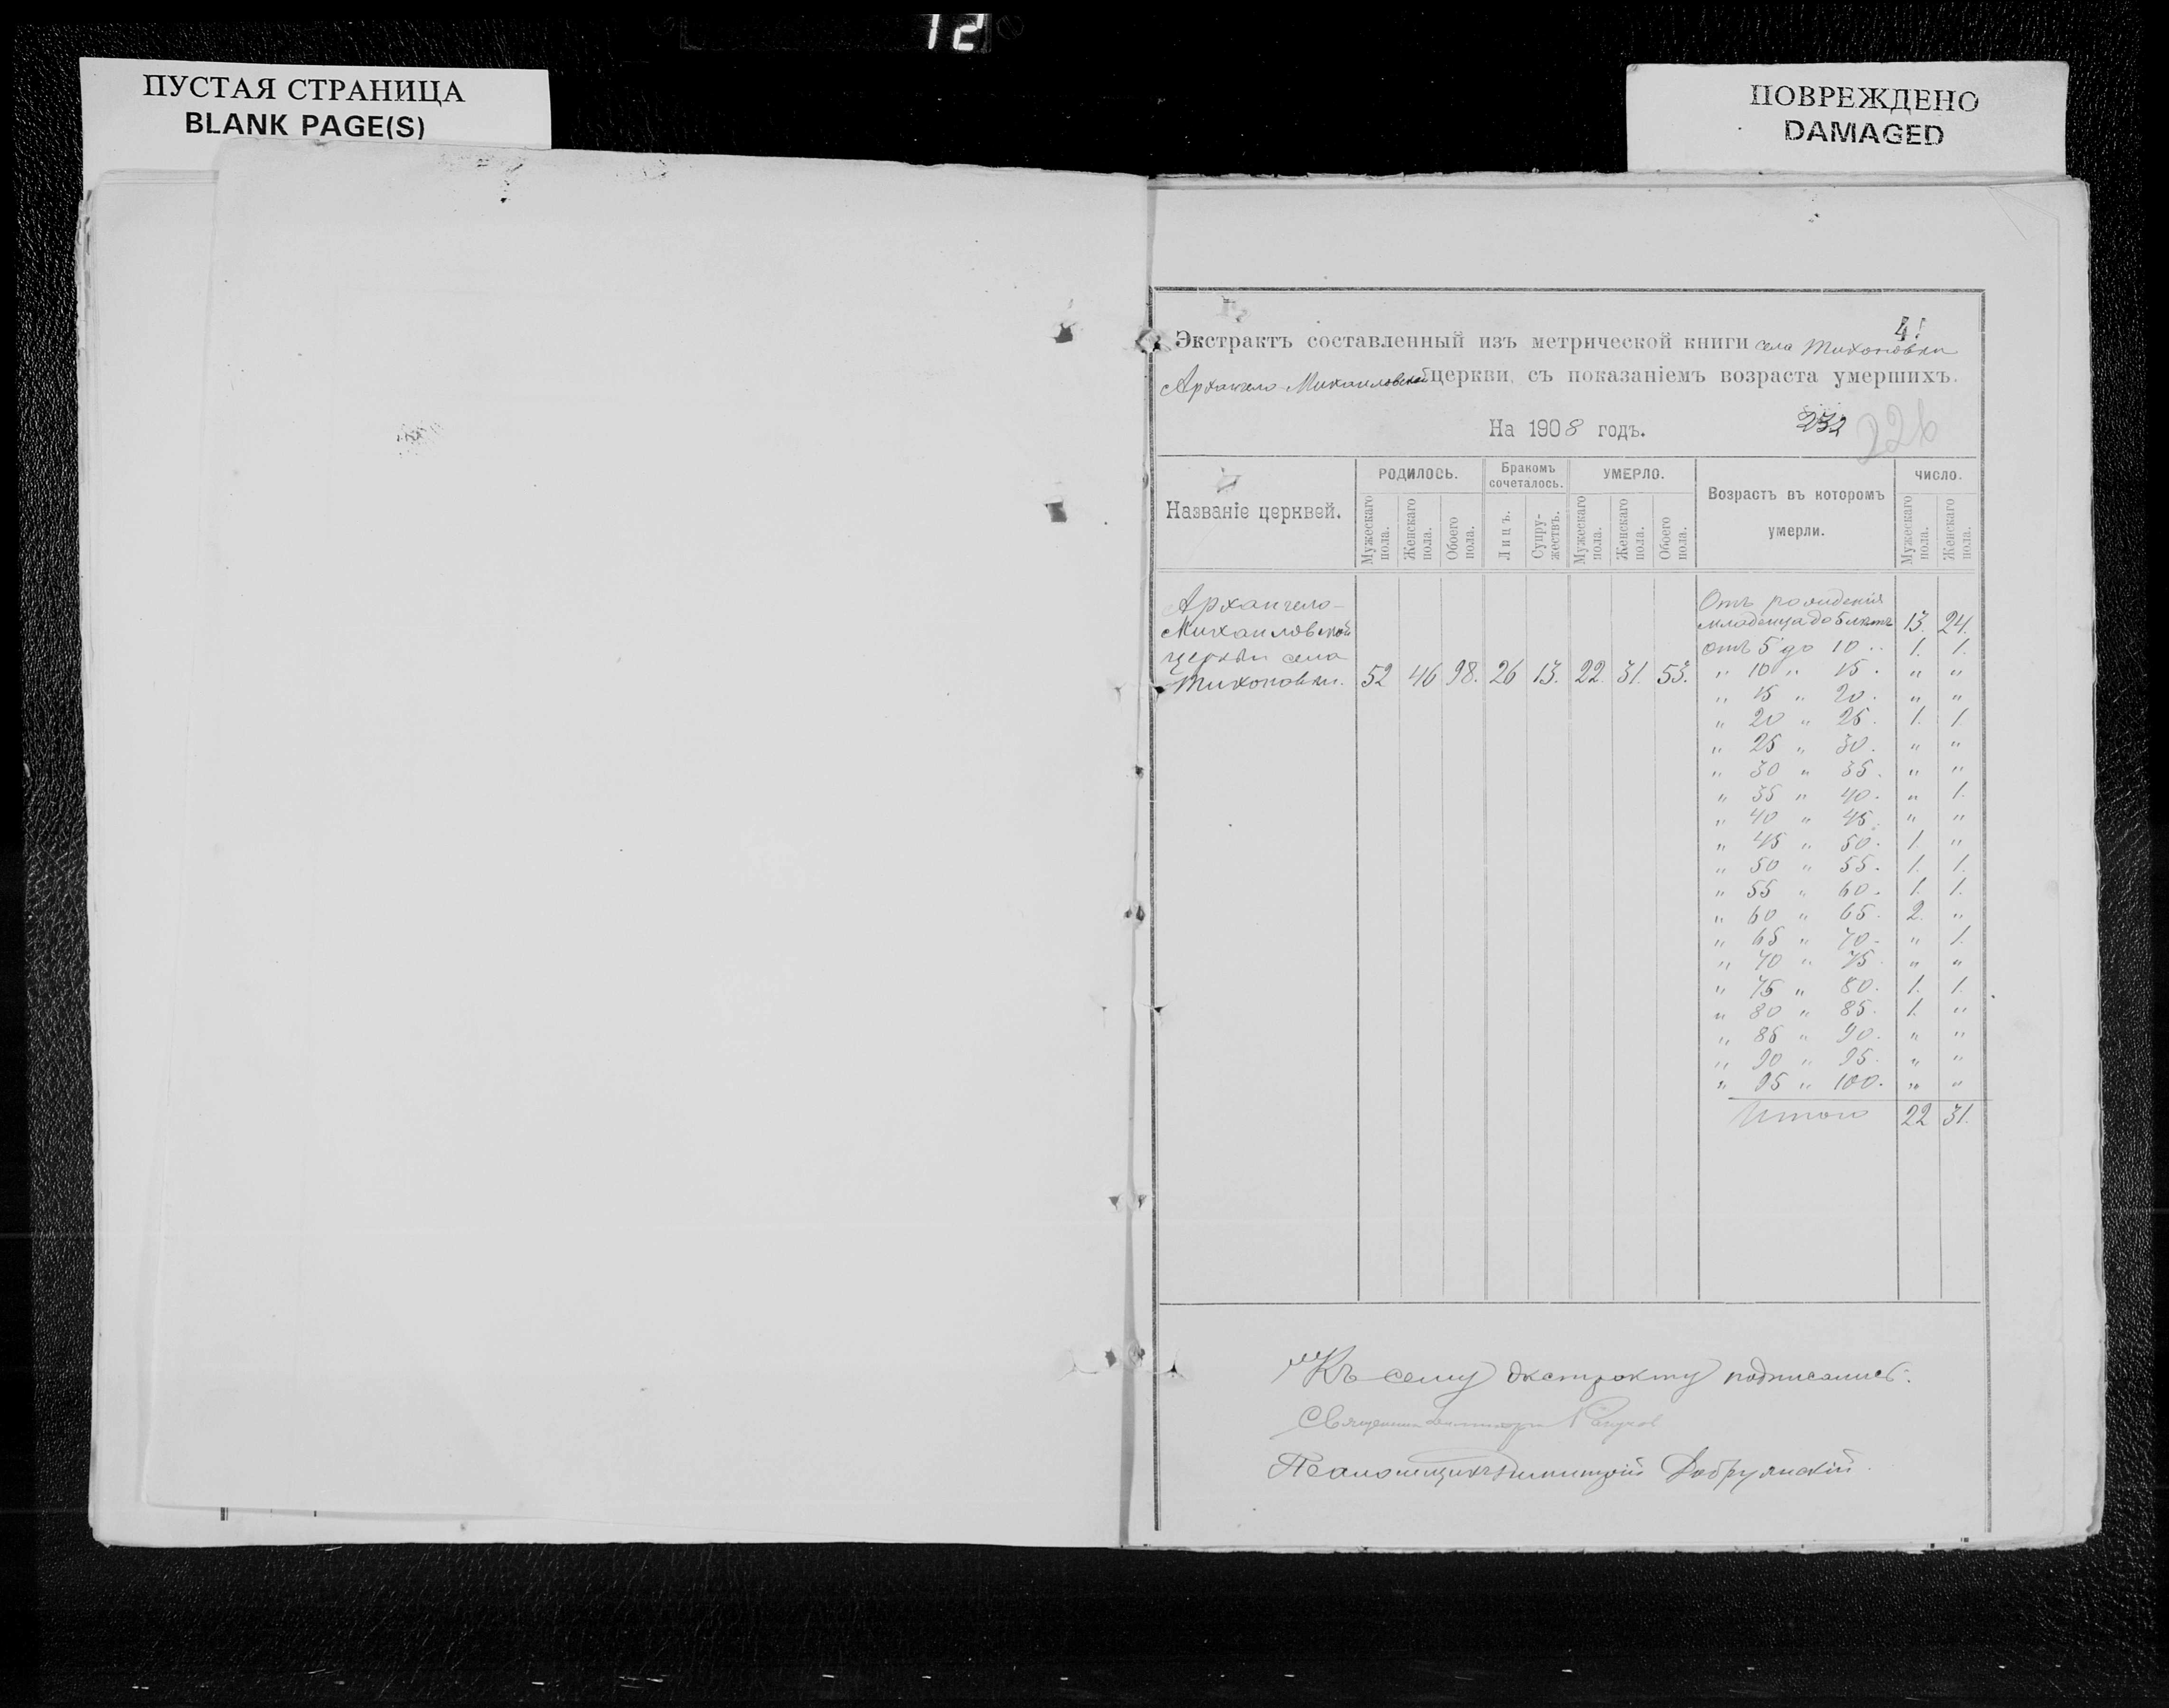 12
ПУСТАЯ СТРАНИЦА
BLANK PAGE(S)
ПОВРЕЖДЕНО
DAMAGED
4!
Экстрактъ составленный изъ метрической книги села Тихоновки
Архангело-Михаиловской церкви, съ показаніемъ возраста умершихъ.
На 1908 годъ.
232
226
Названіе церквей.
РОДИЛОСЬ.
Бракомъ сочеталось.
УМЕРЛО.
Возрастъ въ которомъ умерли.
ЧИСЛО.
Мужескаго пола.
Женскаго пола.
Обоего пола.
Лицъ.
Супружествъ.
Мужескаго пола.
Женскаго пола.
Обоего пола.
Мужескаго пола.
Женскаго пола.
Архангело-
Михаиловской
церкви села
Тихоновки. 52 46 98. 26 13. 22. 31. 53.
Отъ рожденія
младенца до 5 лѣтъ 13. 24.
отъ 5 до 10 .. 1. 1.
" 10 " 15 . " "
" 15 " 20 . " "
" 20 " 25 . 1. 1.
" 25 " 30 . " "
" 30 " 35 . " "
" 35 " 40 . " 1.
" 40 " 45 . " "
" 45 " 50 . 1. "
" 50 " 55 . 1. 1.
" 55 " 60 . 1. 1.
" 60 " 65 . 2. "
" 65 " 70 . " 1.
" 70 " 75 . " "
" 75 " 80 . 1. 1.
" 80 " 85 . 1. "
" 85 " 90 . " "
" 90 " 95 . " "
" 95 " 100 . " "
Итого 22 31.
Къ сему экстракту подписались:
Священникъ
Псаломщикъ Димитрій Добрянскій.